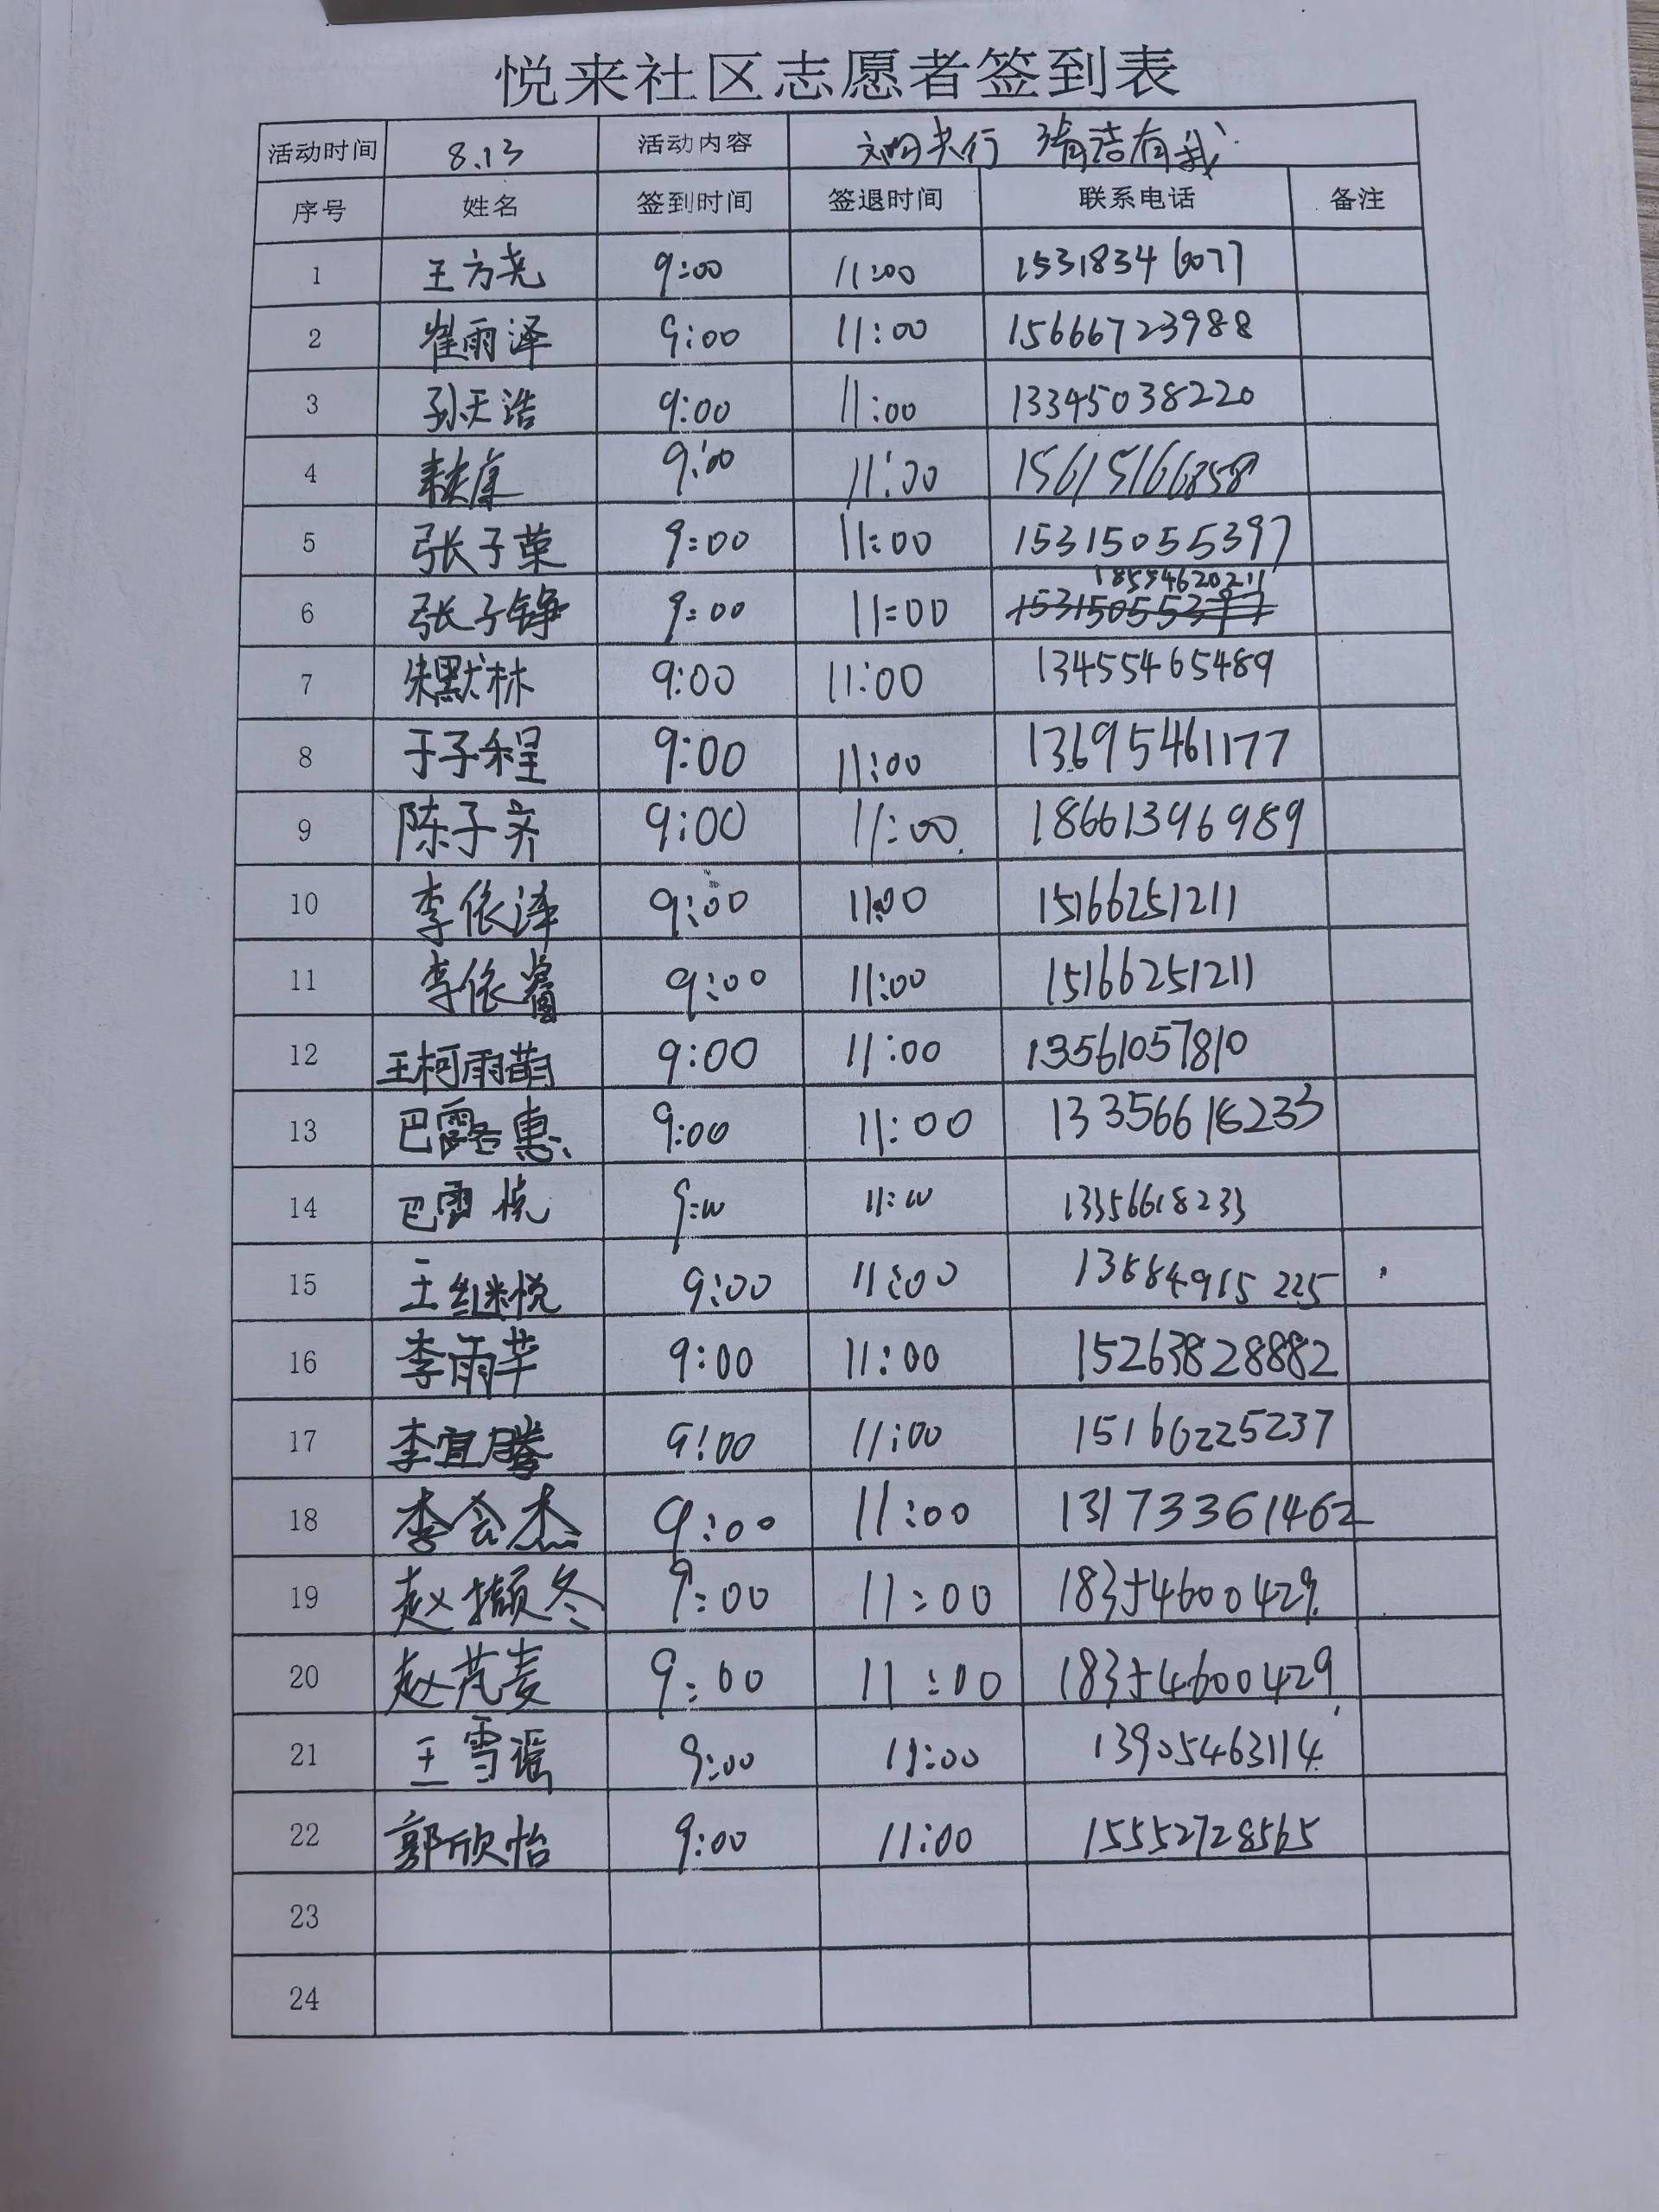 悦来社区志愿者签到表
活动时间 8.13 活动内容 文明共行 清洁有我
序号 姓名 签到时间 签退时间 联系电话 备注
1 王方尧 9:00 11:00 15318346077
2 崔雨泽 9:00 11:00 15666723988
3 孙天浩 9:00 11:00 13345038220
4 9:00 11:00 15615166858
5 张子荣 9:00 11:00 15315055397
18554620211
6 张子铮 9:00 11:00 15315055397
7 朱默林 9:00 11:00 13455465489
8 于子程 9:00 11:00 13695461177
9 陈子齐 9:00 11:00 18661396989
10 李依泽 9:00 11:00 15166251211
11 李依睿 9:00 11:00 15166251211
12 王柯雨萌 9:00 11:00 13561057810
13 巴露惠 9:00 11:00 13356618233
14 巴雪悦 9:00 11:00 13356618233
15 王继悦 9:00 11:00
16 李雨芊 9:00 11:00 15263828882
17 李宜腾 9:00 11:00 15166225237
18 李会杰 9:00 11:00 13173361462
19 赵撷冬 9:00 11:00 18354600429
20 赵芃麦 9:00 11:00 18354600429
21 王雪谣 9:00 11:00 13905463114
22 郭欣怡 9:00 11:00 15552728565
23
24